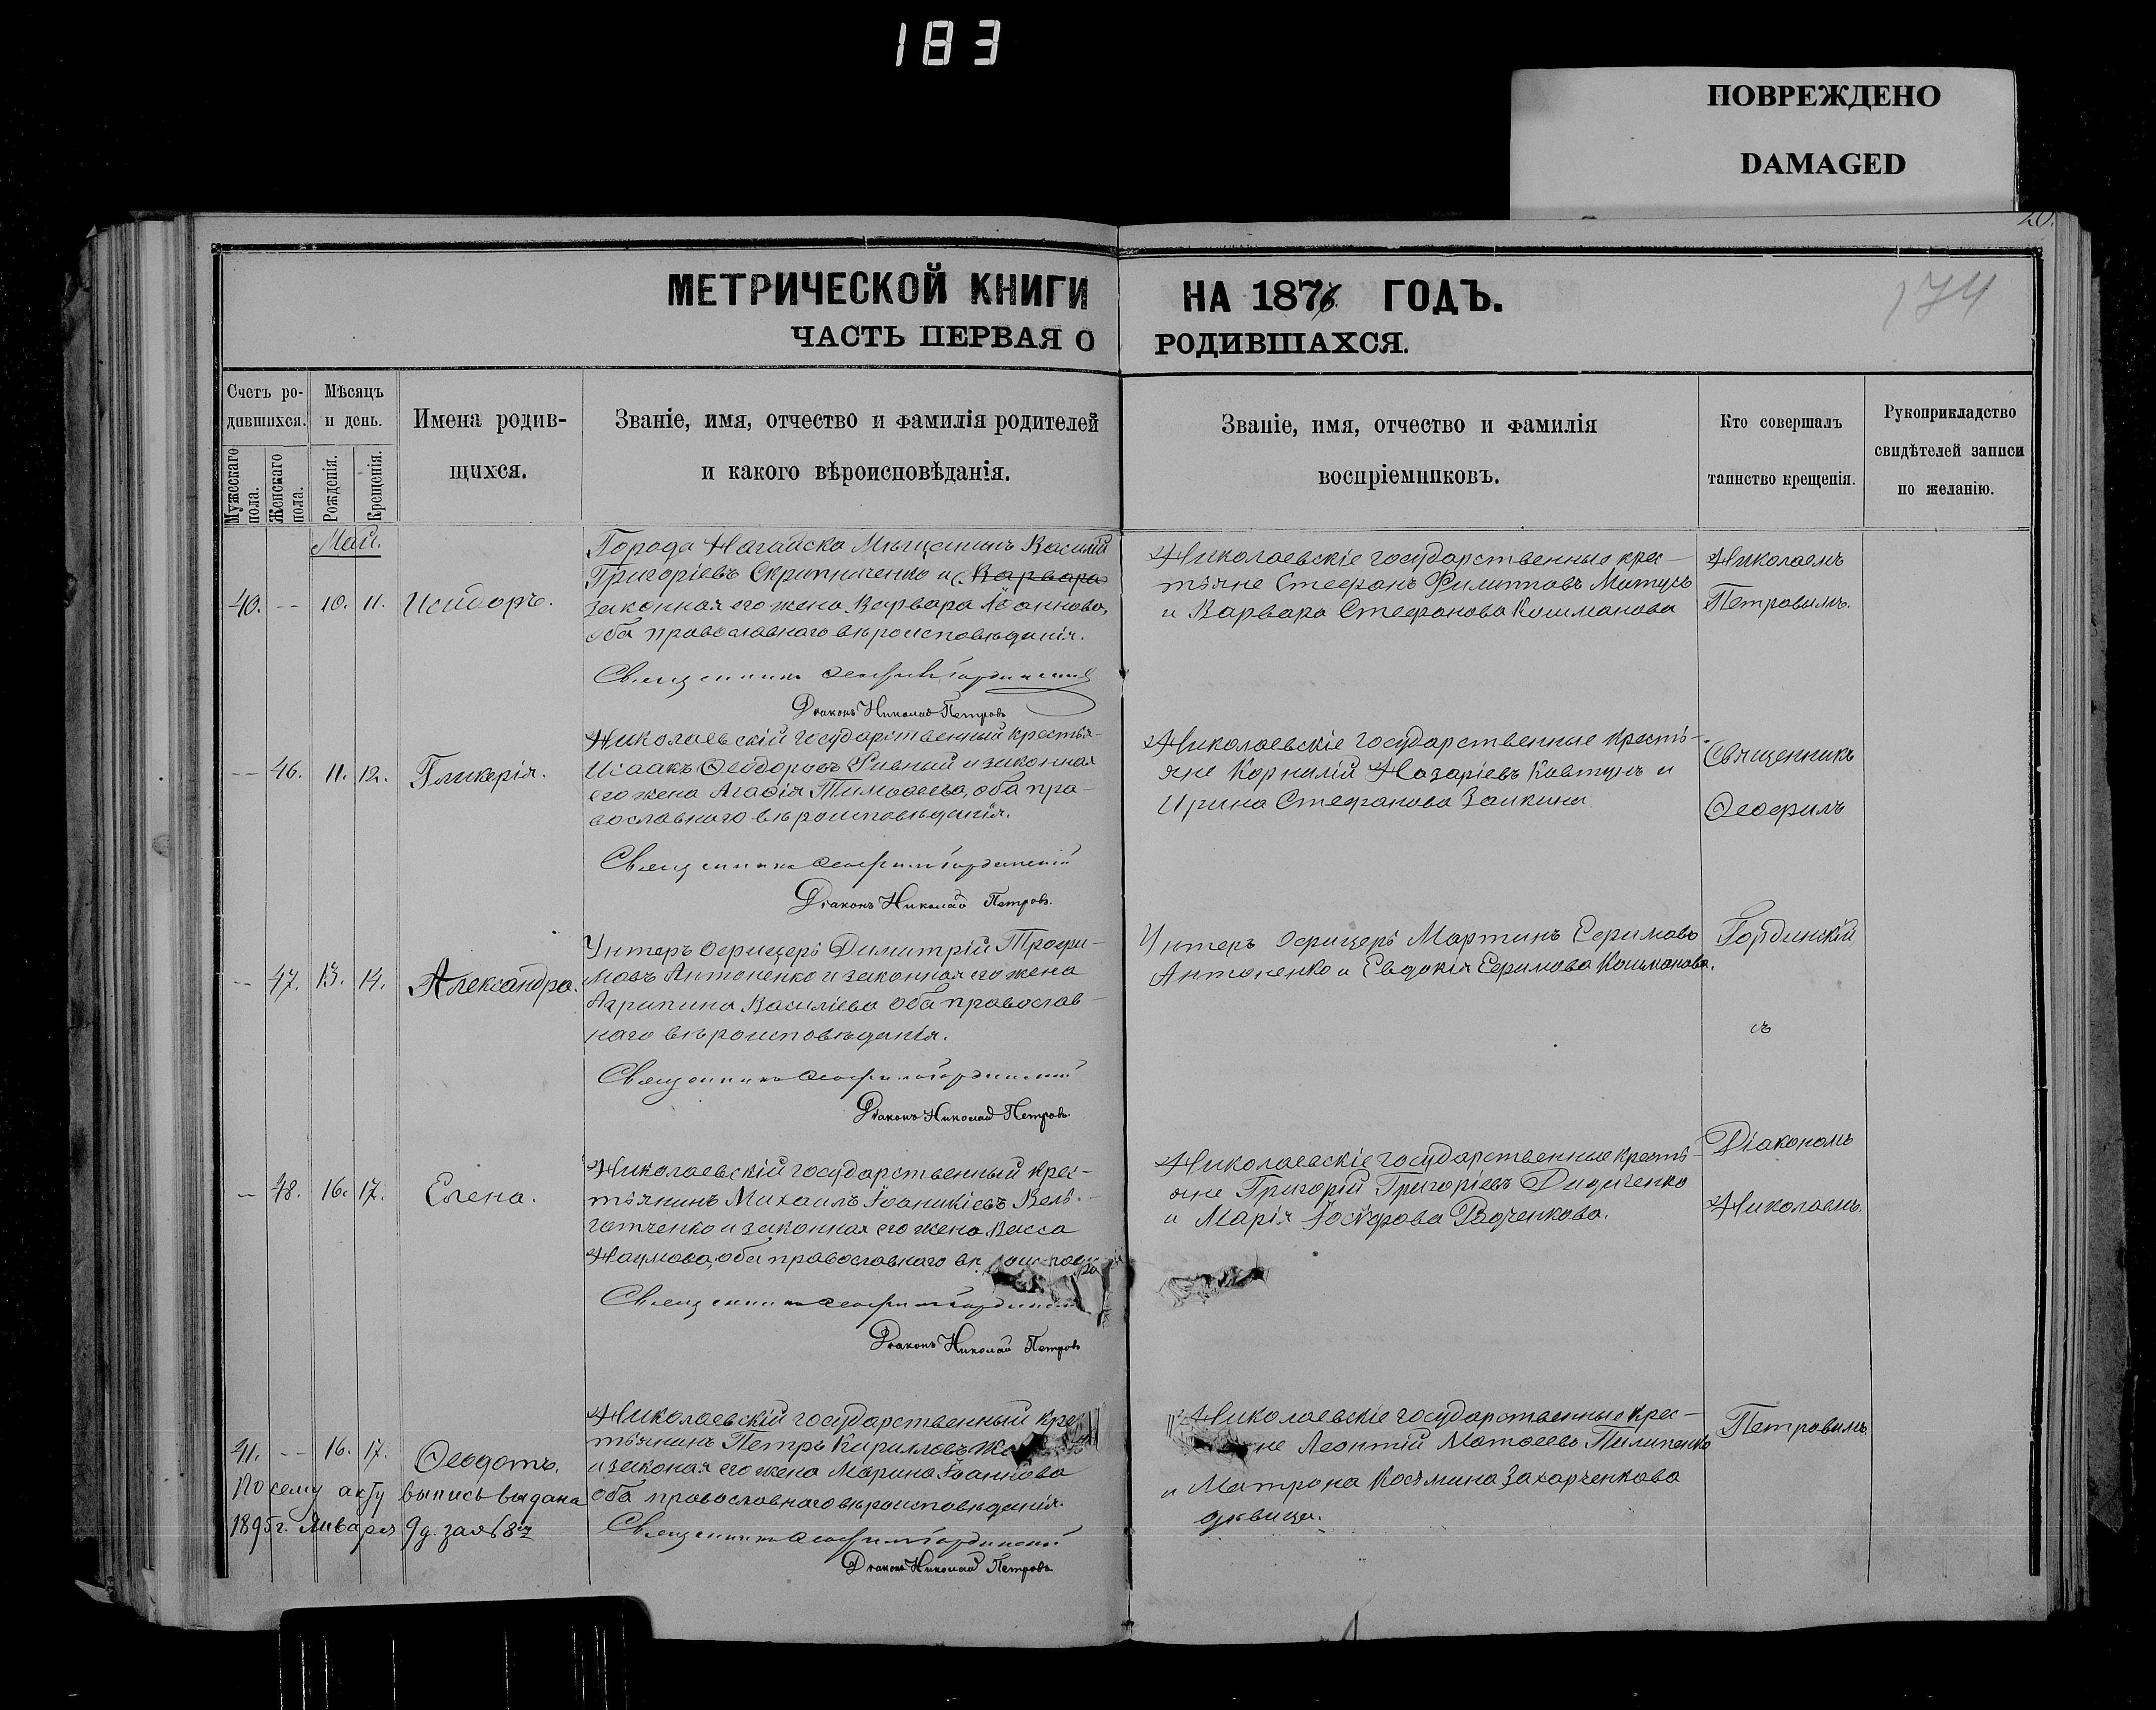 183
ПОВРЕЖДЕНО
DAMAGED
20.
174
МЕТРИЧЕСКОЙ КНИГИ НА 1876 ГОДЪ.
ЧАСТЬ ПЕРВАЯ О РОДИВШАХСЯ.
Счетъ ро-
дившихся.
Мужескаго пола.
Женскаго пола.
Мѣсяцъ
и день.
Рожденія.
Крещенія.
Имена родив-
щихся.
Званіе, имя, отчество и фамилія родителей
и какого вѣроисповѣданія.
Званіе, имя, отчество и фамилія
воспріемниковъ.
Кто совершалъ
таинство крещенія.
Рукоприкладство
свидѣтелей записи
по желанію.
Май.
40. -- 10. 11. Исидоръ.
Города Нагайска Мѣщанинъ Василій
Григоріевъ Скрипниченко и Варвара
законная его жена Варвара Іоаннова,
оба православнаго вѣроисповѣданія.
Священникъ Ѳеофилъ Гординскій
Діаконъ Николай Петровъ
Николаевскіе государственные крес-
тьяне Стефанъ Филипповъ Матусь
и Варвара Стефанова Кошманова
Николаемъ
Петровымъ.
-- 46. 11. 12. Гликерія.
Николаевскій государственный крестья-
Исаакъ Ѳеодоровъ Ривный и законная
его жена Агафія Тимоѳеева, оба пра-
вославнаго вѣроисповѣданія.
Священникъ Ѳеофилъ Гординскій
Діаконъ Николай Петровъ.
Николаевскіе государственные кресть-
яне Корнилій Назаріевъ Ковтунъ и
Ирина Стефанова Заикина
Священникъ
Ѳеофилъ
-- 47. 13. 14. Александра.
Унтеръ офицеръ Димитрій Трофи-
мовъ Антоненко и законная его жена
Агрипина Василіева оба православ-
наго вѣроисповѣданія.
Священникъ Ѳеофилъ Гординскій
Діаконъ Николай Петровъ.
Унтеръ офицеръ Мартинъ Ефимовъ
Антоненко и Евдокія Ефимова Кошманова.
Гординскій
съ
-- 48. 16. 17. Елена.
Николаевскій государственный крес-
тьянинъ Михаилъ Іоаникіевъ Вель-
готченко и законная его жена Васса
Наумова, оба православнаго
Священникъ Ѳеофилъ Гординскій
Діаконъ Николай Петровъ
Николаевскіе государственные кресть-
яне Григорій Григоріевъ Дидиченко
и Марія Радченкова.
Діакономъ
Николаемъ.
41. -- 16. 17. Ѳеодотъ.
Николаевскій государственный крес
тьянинъ Петръ Кириловъ
и законая его жена Марина Іоаннова
оба православнаго вѣроисповѣданія.
Священникъ Ѳеофилъ Гординскій
Діаконъ Николай Петровъ.
Николаевскіе государственные крес-
не Леонтій Матѳеевъ Пилипенко
и Матрона Косьмина Захарченкова
дѣвица.
Петровымъ.
По сему акту выпись выдана
1895 г. Января 9 д. за №